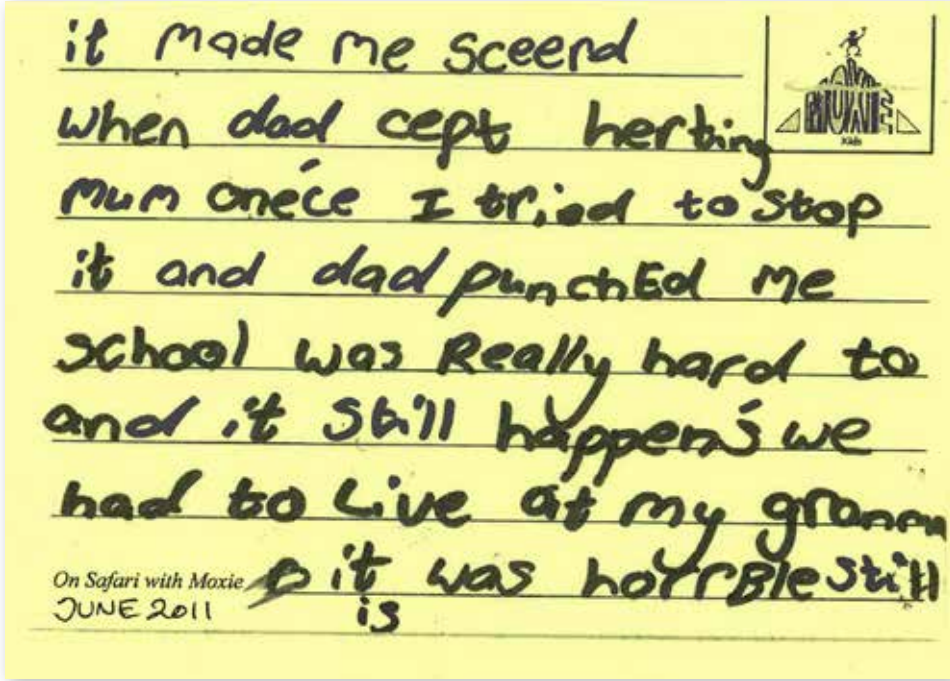 it made me sceerd
when dad cept herting
mum onece I tried to stop
it and dad punchEd me
school was Really hard to
and it still happens we
had to Live at my granma
it was horrBle still
is
On Safari with Moxie
JUNE 2011
MOXIE
Kids